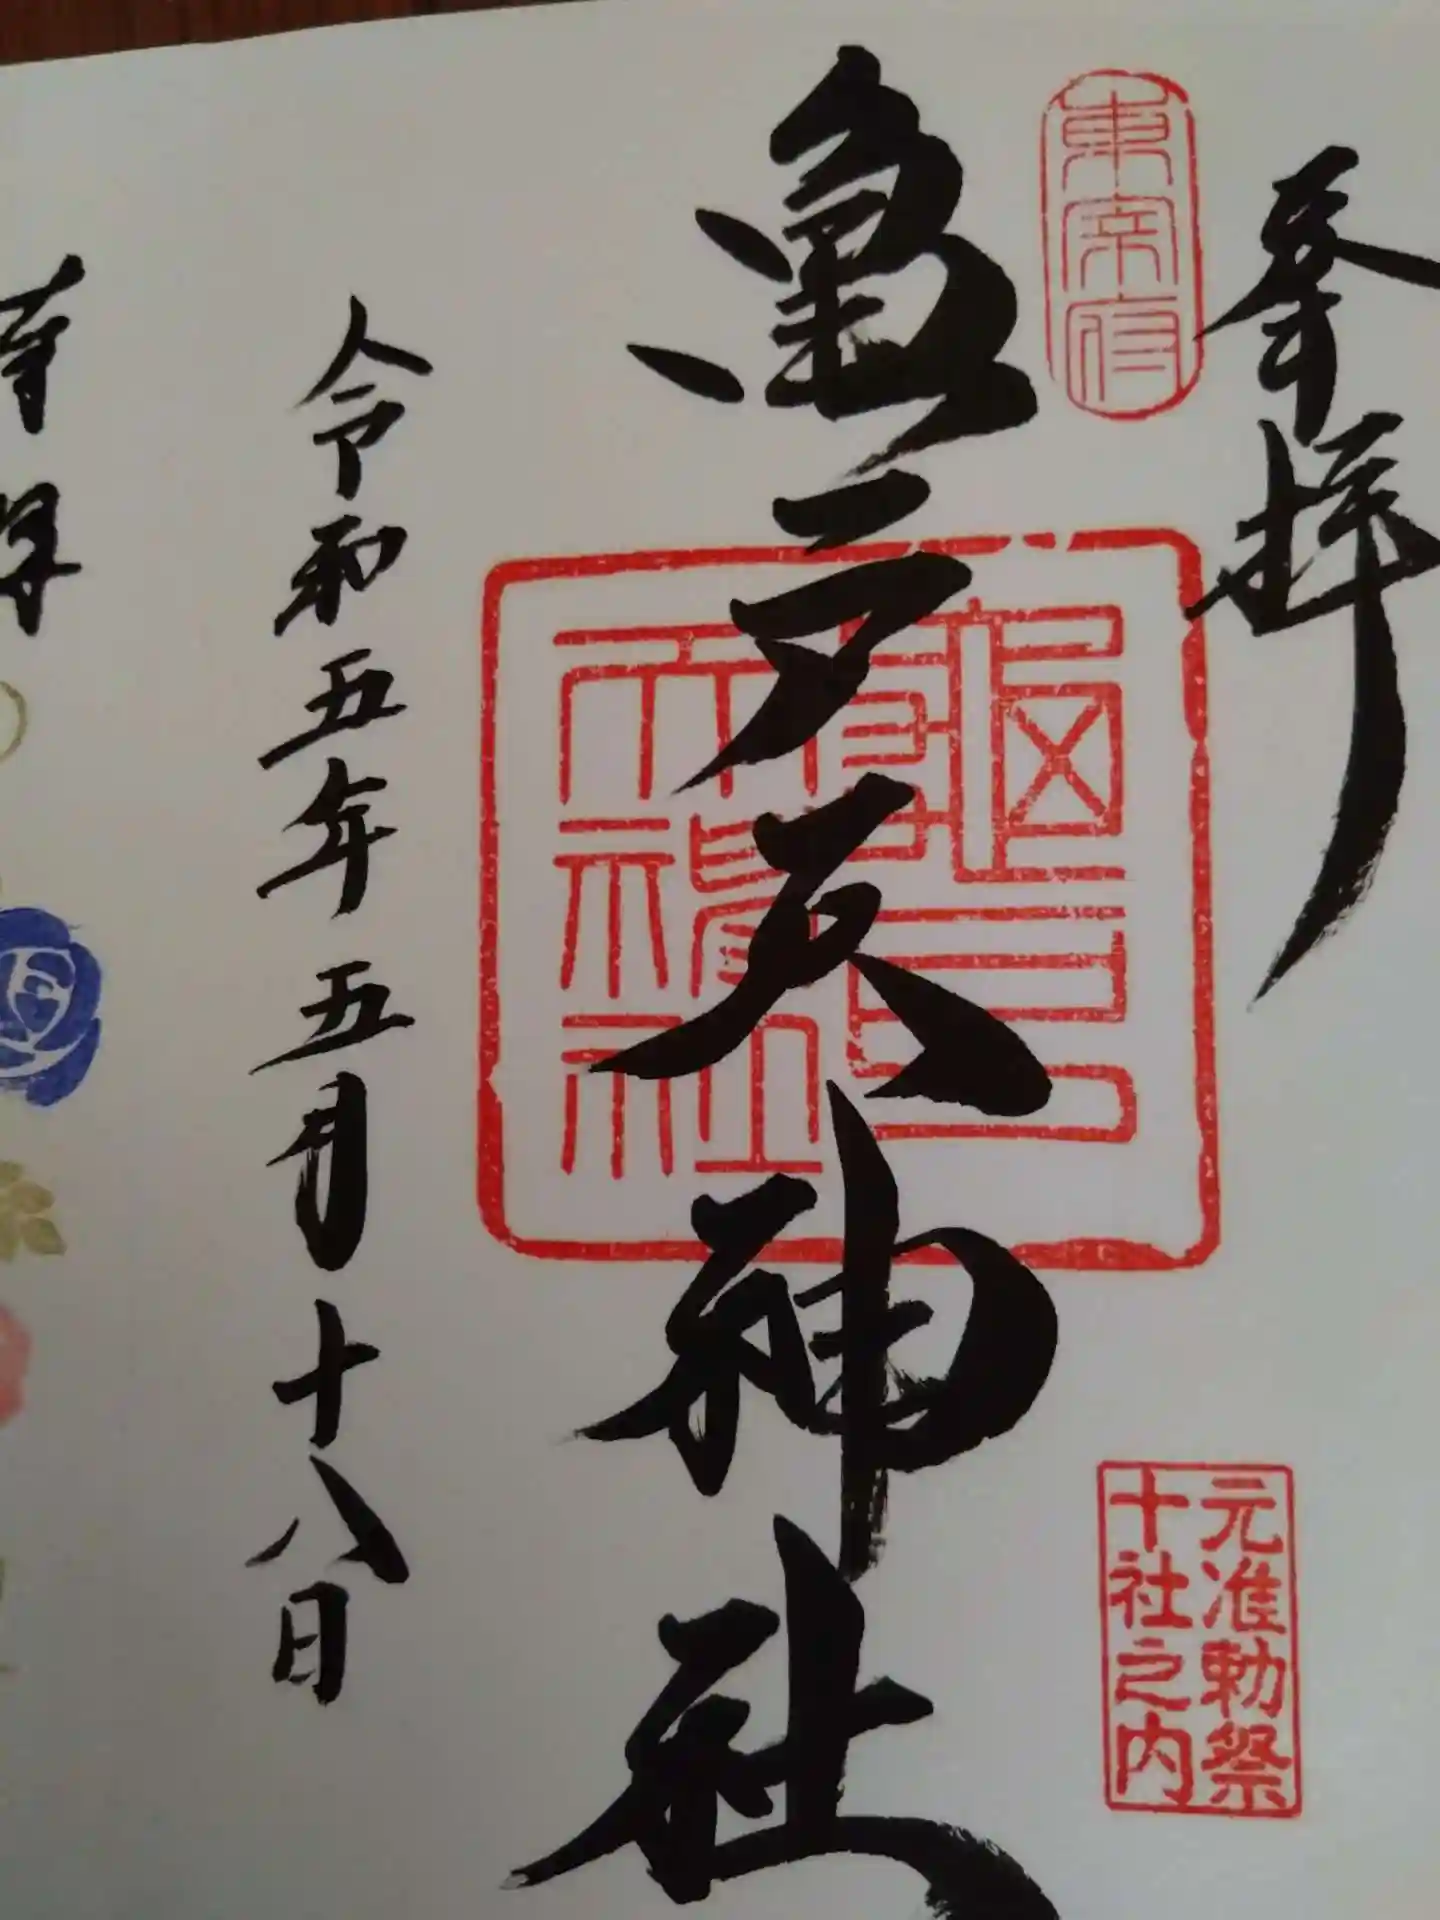 奉拝
東宰府
亀戸天神社
龜戸天神社
元准勅祭
十社之内
令和五年五月十八日
奉拝